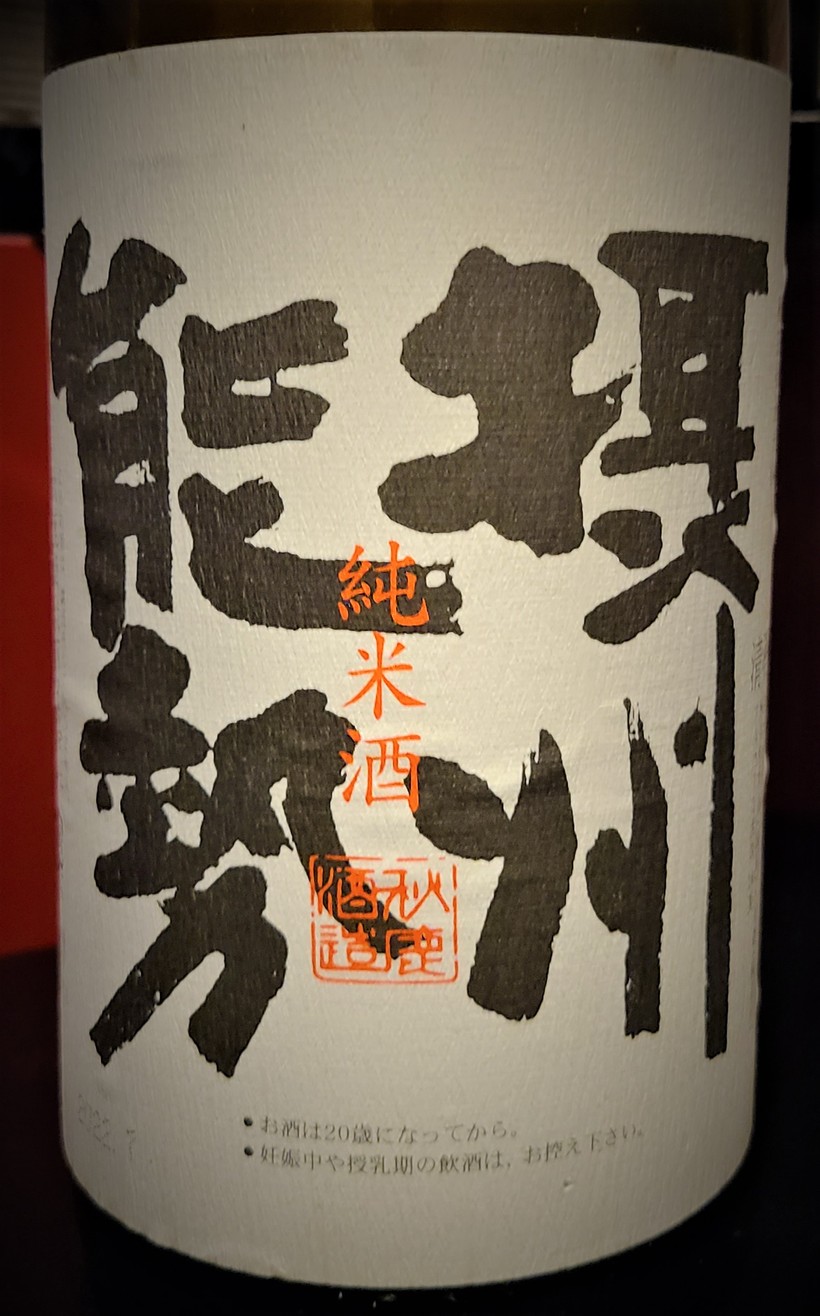 摂州
能勢
純米酒
秋鹿
酒造
• お酒は20歳になってから。
• 妊娠中や授乳期の飲酒は、お控え下さい。